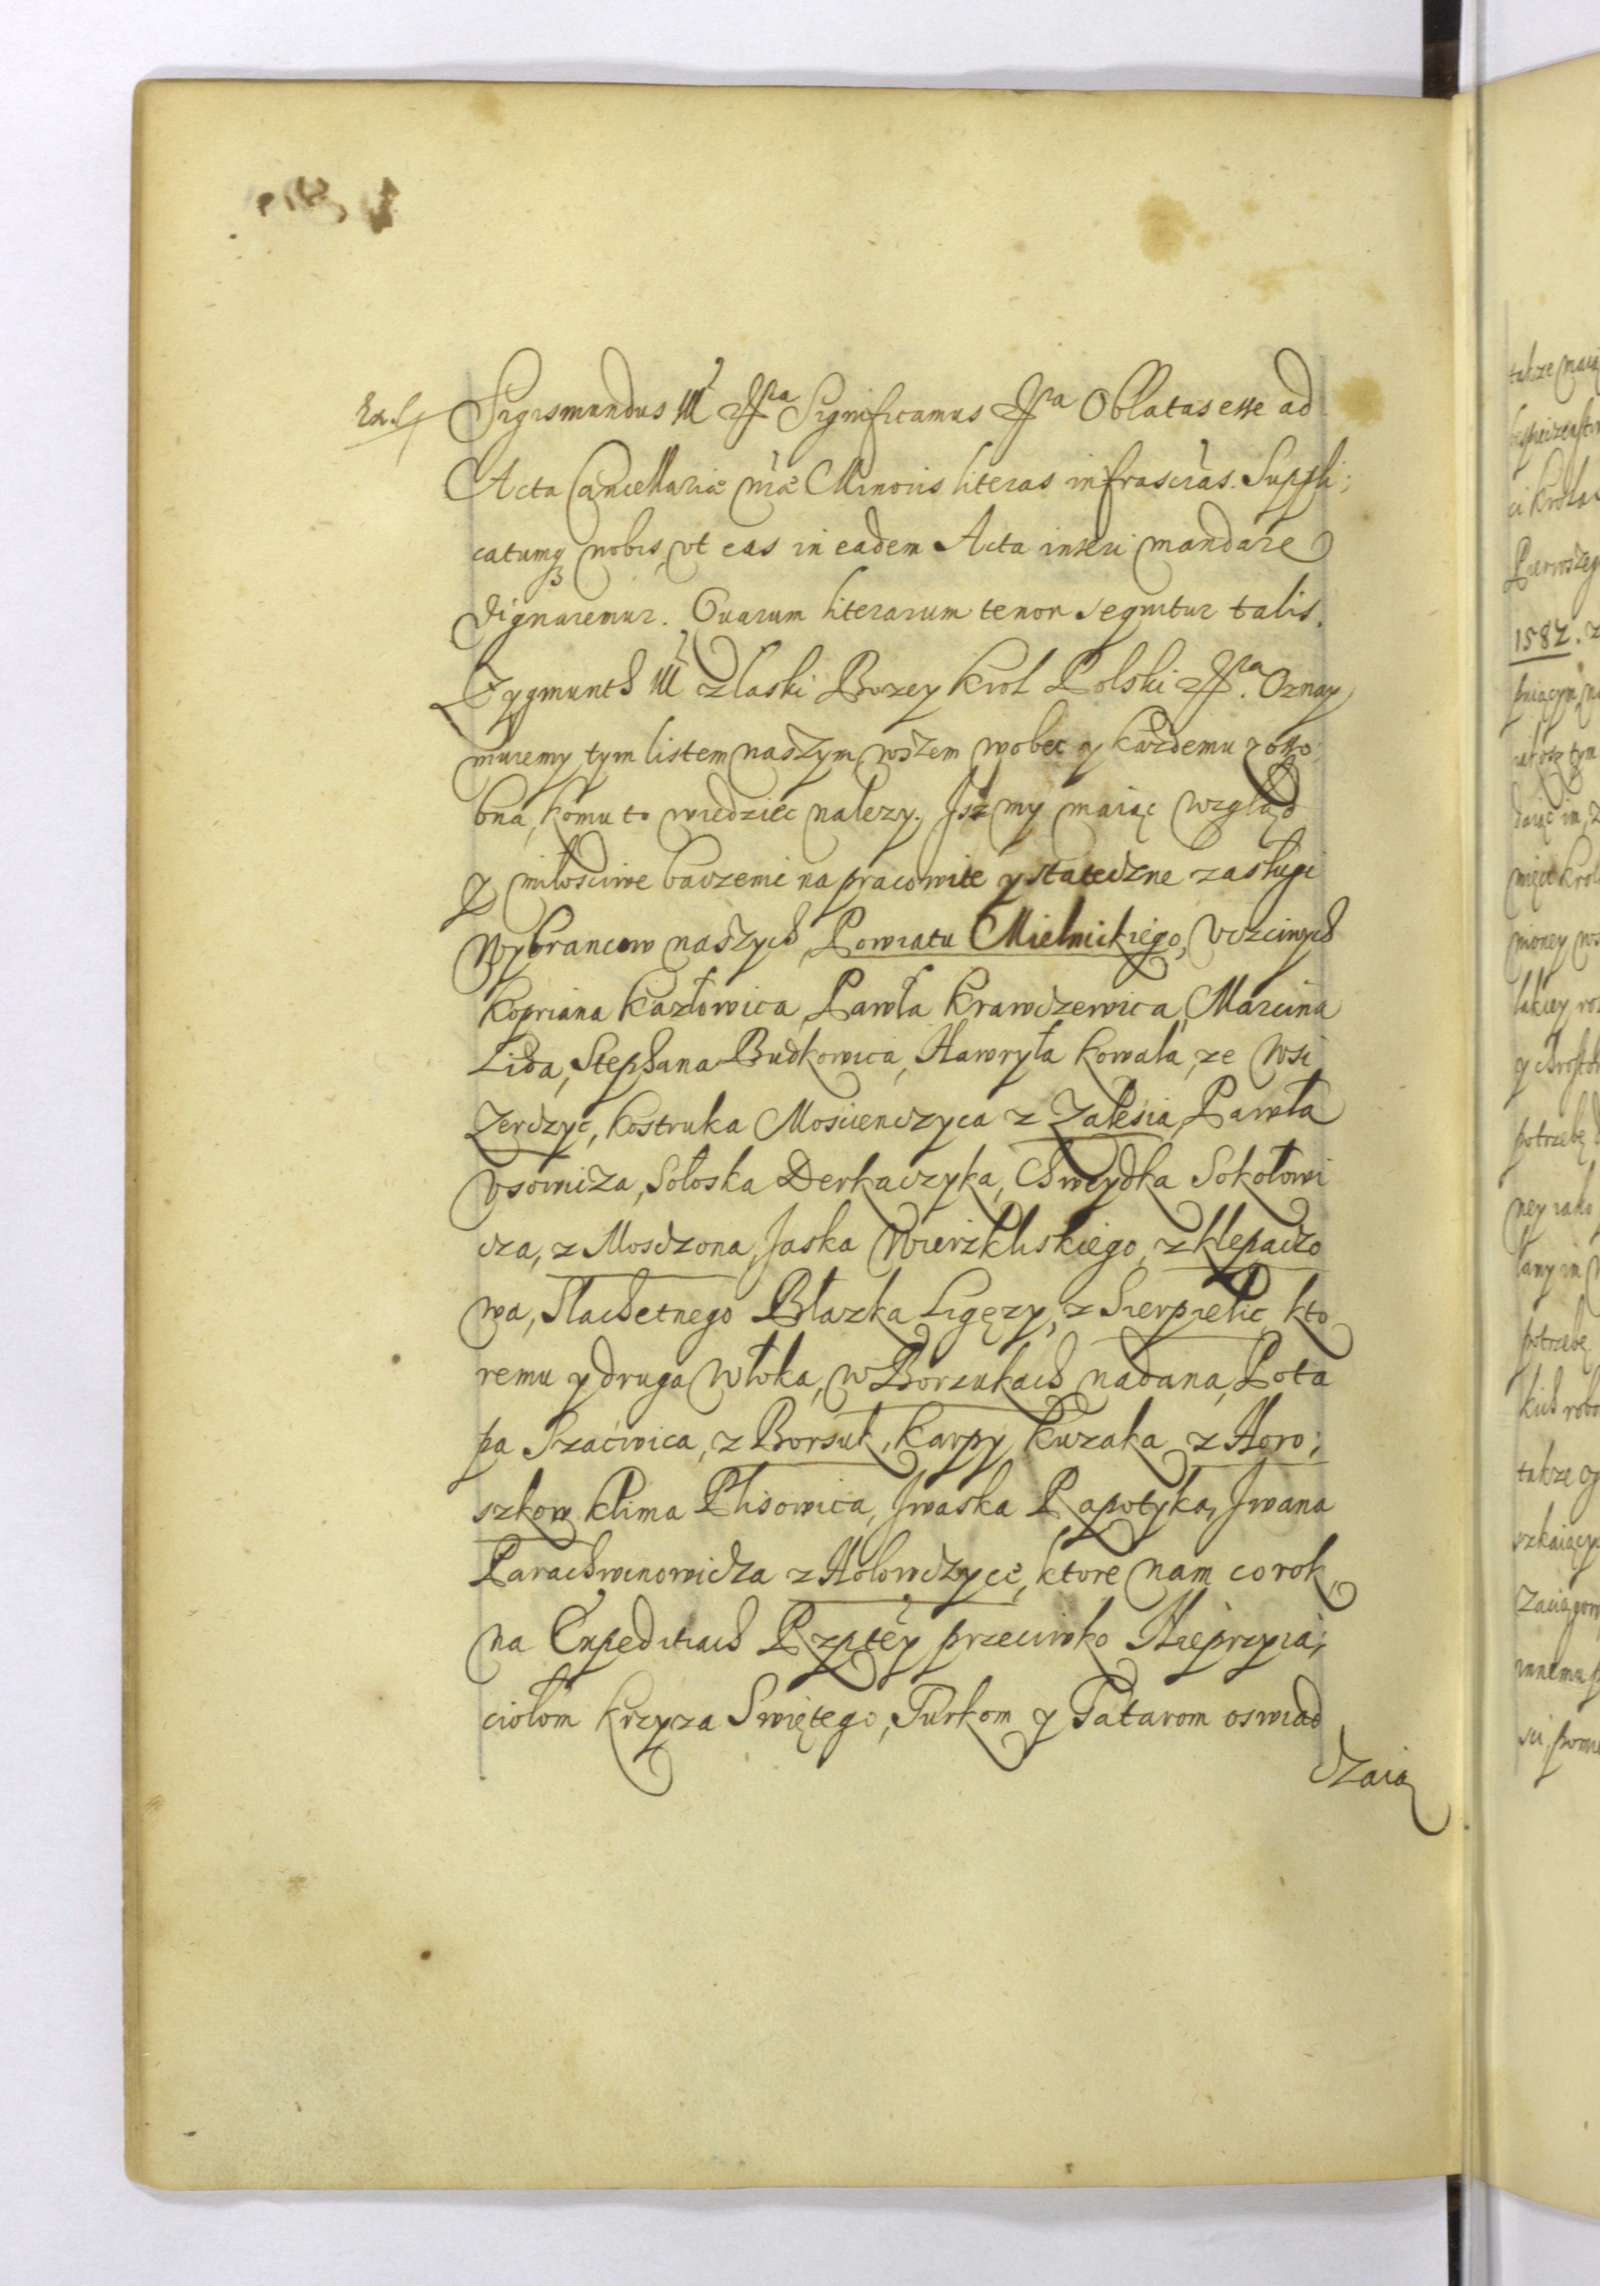 Sigismundus III etc. Significamus etc. Oblatas esse ad
Acta Cancellariæ nræ Minoris literas infrascras. Suppli:
catumq nobis, vt eas in eadem Acta inseri mandare
dignaremur. Quarum literarum tenor sequitur talis.
Zygmunth III z łaski Bozey Krol Polski etc. Oznay
muiemy tym listem naszym wszem wobec y kazdemu z oso:
bna, komu to wiedziec nalezy. Isz my maiąc wzgląd
y miłosciwe baczenie na pracowite y stateczne zasługi
Wybrancow naszych Powiatu Mielnickiego, Vczciwych
Kopriana Kazłowica, Pawła Krawczewica, Marcina
Lida, Stephana Budkowica, Hawryła Kowala, ze wsi
Zerczyc, Kostruka Moscienczyca z Zalesia, Pawła
Vsowicza, Sołoska Derkaczyka, Chweydka Sokołowi
cza, z Mosczona, Jaska Wierzkliskiego, z Klepaczo
wa, Slachetnego Błazka Ligęzy, z Sierpielic, kto
remu y druga Włoka, w Borsukach nadana, Pota
pa Szaćwica, z Borsuk, Karpy Kuzaka z Horo:
szkow Klima Plisowica, Iwaska Rapotyka, Iwana
Parachwinowicza z Holowczyc, ktore nam co rok
na Expeditiach Rzpltey przeciwko Nieprzyia:
ciołom Krzyza Swiętego, Turkom y Tatarom oswiad
czaią
takze maią
ci Krola
Pierwszego
1582. z
potrzebę
potrzebę
takze